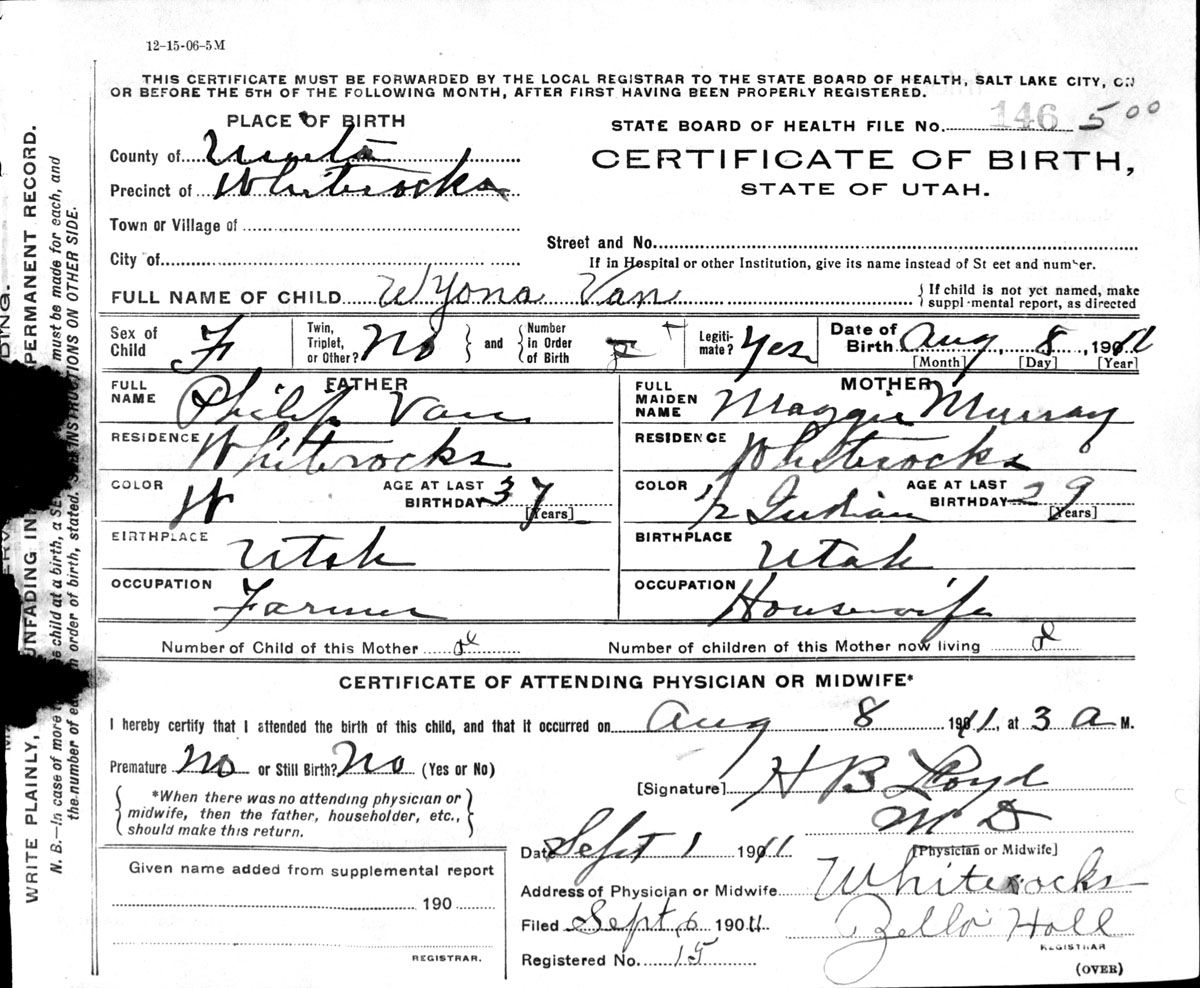 12-15-06-5M
THIS CERTIFICATE MUST BE FORWARDED BY THE LOCAL REGISTRAR TO THE STATE BOARD OF HEALTH, SALT LAKE CITY, ON
OR BEFORE THE 5TH OF THE FOLLOWING MONTH, AFTER FIRST HAVING BEEN PROPERLY REGISTERED.
PLACE OF BIRTH
County of Uinta
Precinct of Whiterocks
Town or Village of
City of
STATE BOARD OF HEALTH FILE No. 146 500
CERTIFICATE OF BIRTH,
STATE OF UTAH.
Street and No.
If in Hospital or other Institution, give its name instead of St eet and number.
FULL NAME OF CHILD Wyona Van
{If child is not yet named, make
suppl·mental report, as directed
Sex of Child F
Twin, Triplet, or Other? No } and { Number in Order of Birth
Legiti-mate? Yes
Date of Birth Aug 8, 1911
[Month] [Day] [Year]
FATHER
FULL NAME Philip Van
RESIDENCE Whiterocks
COLOR W AGE AT LAST BIRTHDAY 37 [Years]
BIRTHPLACE Utah
OCCUPATION Farmer
MOTHER
FULL MAIDEN NAME Maggie Murray
RESIDENCE Whiterocks
COLOR 1/2 Indian AGE AT LAST BIRTHDAY 29 [Years]
BIRTHPLACE Utah
OCCUPATION Housewife
Number of Child of this Mother 2 Number of children of this Mother now living 2
CERTIFICATE OF ATTENDING PHYSICIAN OR MIDWIFE*
I hereby certify that I attended the birth of this child, and that it occurred on Aug 8 1911, at 3 a M.
Premature No or Still Birth? No (Yes or No)
{*When there was no attending physician or
midwife, then the father, householder, etc.,
should make this return.}
[Signature] H B Lloyd
M D
[Physician or Midwife]
Date Sept 1 1911
Address of Physician or Midwife Whiterocks
Filed Sept 6 1911 Zella Hall
REGISTRAR
Registered No. 15
(OVER)
Given name added from supplemental report
190
REGISTRAR.
WRITE PLAINLY, UNFADING IN PERMANENT RECORD.
N. B.—In case of more child at a birth, a SE must be made for each, and
the number of ea n order of birth, stated. INSTRUCTIONS ON OTHER SIDE.